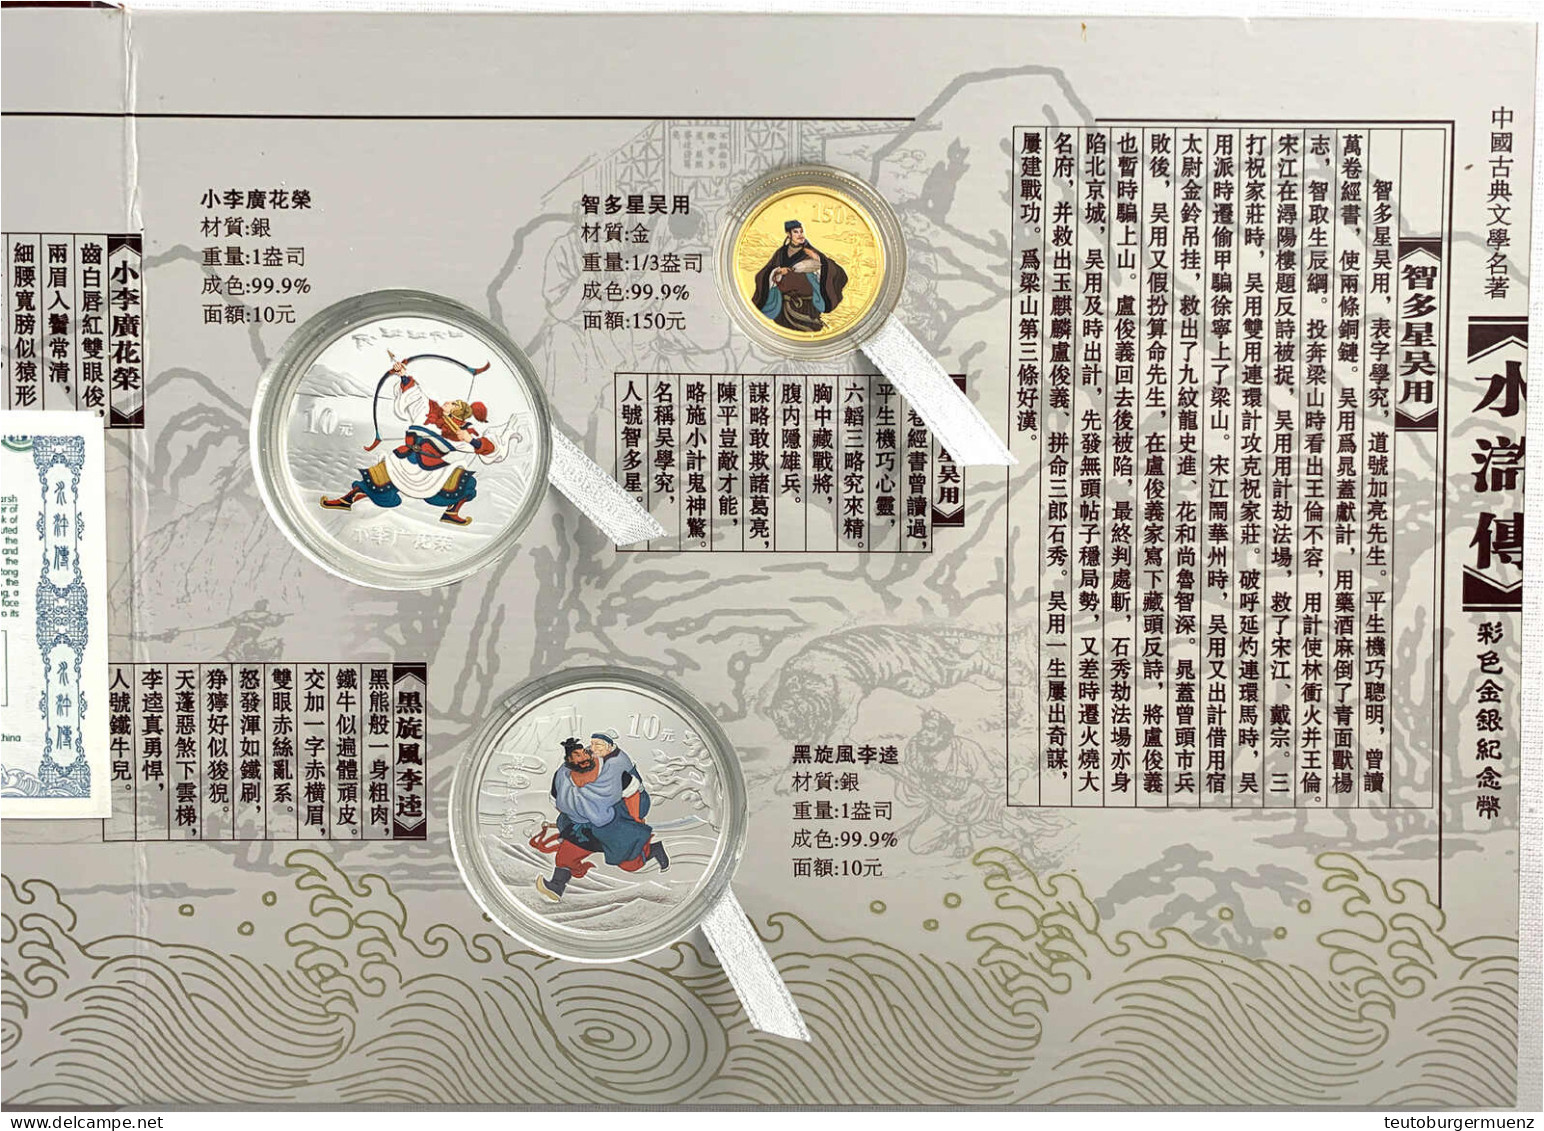 中國古典文學名著
水滸傳
彩色金銀紀念幣
智多星吴用
智多星吴用，表字學究，道號加亮先生。平生機巧聰明，曾讀
萬卷經書，使兩條銅鏈。吴用爲晁蓋獻計，用藥酒麻倒了青面獸楊
志，智取生辰綱。投奔梁山時看出王倫不容，用計使林衝火并王倫。
宋江在潯陽樓題反詩被捉，吴用用計劫法場，救了宋江、戴宗。三
打祝家莊時，吴用雙用連環計攻克祝家莊。破呼延灼連環馬時，吴
用派時遷偷甲騙徐寧上了梁山。宋江鬧華州時，吴用又出計借用宿
太尉金鈴吊挂，救出了九紋龍史進、花和尚魯智深。晁蓋曾頭市兵
敗後，吴用又假扮算命先生，在盧俊義家寫下藏頭反詩，將盧俊義
也暫時騙上山。盧俊義回去後被陷，最終判處斬，石秀劫法場亦身
陷北京城，吴用及時出計，先發無頭帖子穩局勢，又差時遷火燒大
名府，并救出玉麒麟盧俊義、拼命三郎石秀。吴用一生屢出奇謀，
屢建戰功。爲梁山第三條好漢。
智多星吴用
材質:金
重量:1/3盎司
成色:99.9%
面額:150元
150元
星吴用
卷經書曾讀過，
平生機巧心靈，
六韜三略究來精。
胸中藏戰將，
腹内隱雄兵。
謀略敢欺諸葛亮，
陳平豈敵才能，
略施小計鬼神驚。
名稱吴學究，
人號智多星。
小李廣花榮
材質:銀
重量:1盎司
成色:99.9%
面額:10元
10元
小李广花荣
小李廣花榮
齒白唇紅雙眼俊，
兩眉入鬢常清，
細腰寬膀似猿形
黑旋風李逵
材質:銀
重量:1盎司
成色:99.9%
面額:10元
10元
黑旋風李逵
黑熊般一身粗肉，
鐵牛似遍體頑皮。
交加一字赤横眉，
雙眼赤絲亂系。
怒發渾如鐵刷，
猙獰好似狻猊。
天蓬惡煞下雲梯，
李逵真勇悍，
人號鐵牛兒。
水滸傳
水滸傳
arsh
er of
k of
uted
the
and
the
tong
, the
g, a
face
o its
hina
teutoburgermuenz